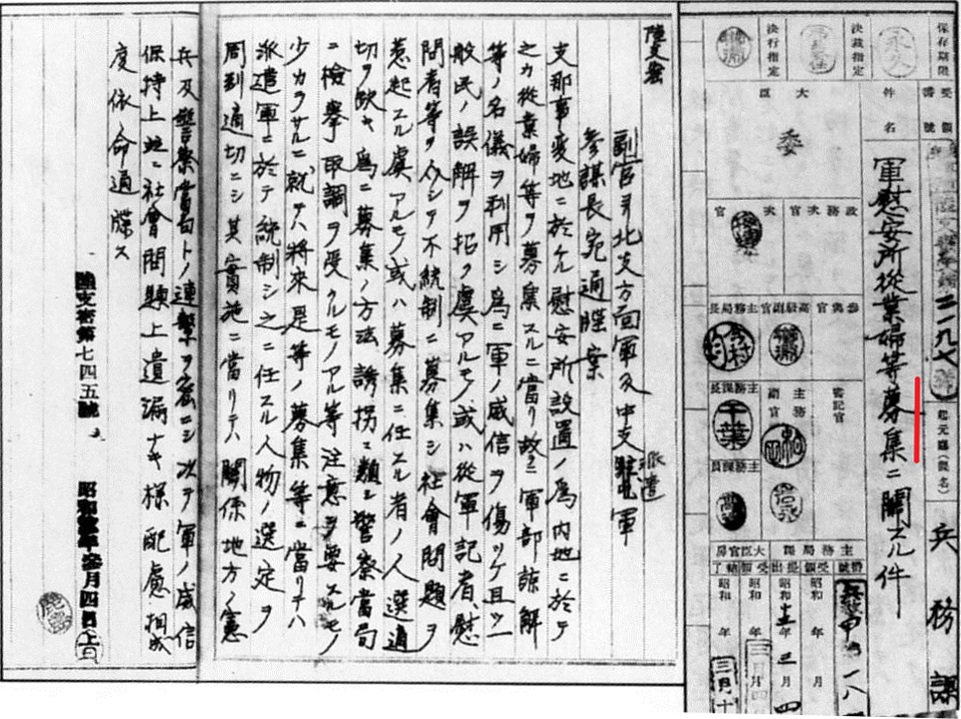 保存期限
永久
決裁指定
決行指定
受領
番號
二一九七號
起元廳(課名)
兵務課
件名
軍慰安所從業婦等募集ニ關スル件
大臣
委
政務次官
次官
參與官
高級副官
主務局長
今村
書記官
主務副官
主務課長
千葉
主務課員
大臣官房
主務局課
昭和 年 月
昭和十三年三月四
昭和 年
昭和 年
三月十
陸支密
副官ヨリ北支方面軍及中支派遣軍
參謀長宛通牒案
支那事變地ニ於ケル慰安所設置ノ爲内地ニ於テ
之カ從業婦等ヲ募集スルニ當リ故ラニ軍部諒解
等ノ名儀ヲ利用シ爲ニ軍ノ威信ヲ傷ツケ且ツ一
般民ノ誤解ヲ招ク虞アルモノ或ハ從軍記者、慰
問者等ヲ介シテ不統制ニ募集シ社會問題ヲ
惹起スル虞アルモノ或ハ募集ニ任スル者ノ人選適
切ヲ欠キ爲ニ募集ノ方法誘拐ニ類シ警察當局
ニ檢擧取調ヲ受クルモノアル等注意ヲ要スルモノ
少カラサルニ就テハ將來是等ノ募集等ニ當リテハ
派遣軍ニ於テ統制シ之ニ任スル人物ノ選定ヲ
周到適切ニシ其實施ニ當リテハ關係地方ノ憲
兵及警察當局トノ連繫ヲ密ニシ次テ軍ノ威信
保持上並ニ社會問題上遺漏ナキ樣配慮相成
度依命通牒ス
陸支密第七四五號 昭和拾參年參月四日